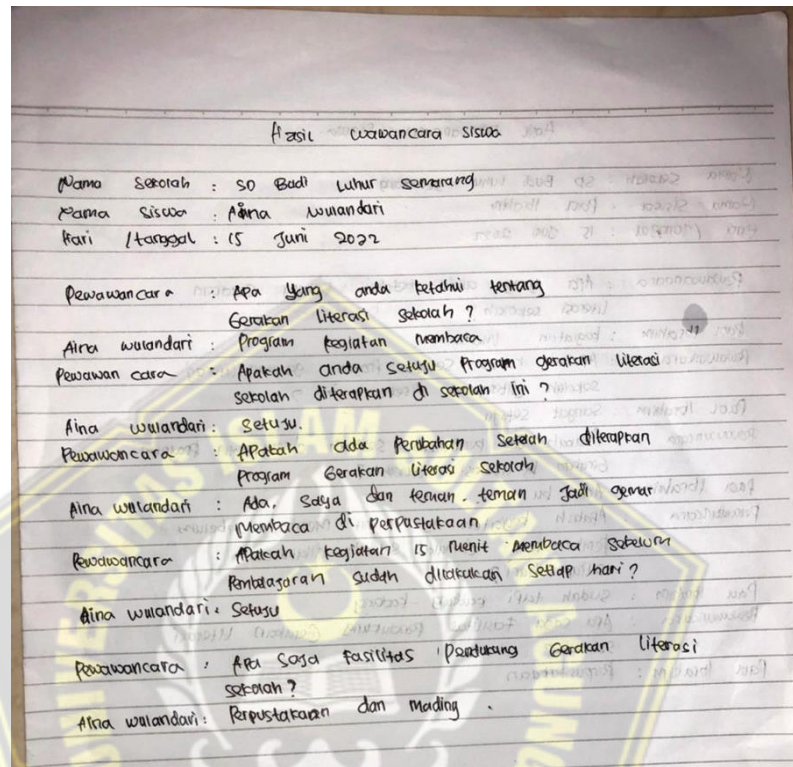 Hasil wawancara siswa
Nama Sekolah : SD Badi Luhur Semarang
Nama Siswa : Aina wulandari
Hari / tanggal : 15 Juni 2022
Pewawancara : Apa yang anda ketahui tentang
Gerakan literasi sekolah ?
Aina wulandari : Program kegiatan membaca
Pewawan cara : Apakah anda setuju program gerakan literasi
sekolah diterapkan di sekolah ini ?
Aina wulandari : Setuju.
Pewawancara : Apakah ada Perubahan Setelah diterapkan
Program Gerakan literasi Sekolah
Aina wulandari : Ada, Saya dan teman. teman Jadi gemar
Membaca di perpustakaan
Pewawancara : Apakah kegiatan 15 menit membaca Sebelum
Pembelajaran Sudah dilakukan Setiap hari ?
Aina wulandari : Setuju
Pewawancara : Apa Saja Fasilitas Pendukung Gerakan literasi
sekolah ?
Aina wulandari : Perpustakaan dan Mading .
UNIVERSITAS ISLAM SULTAN